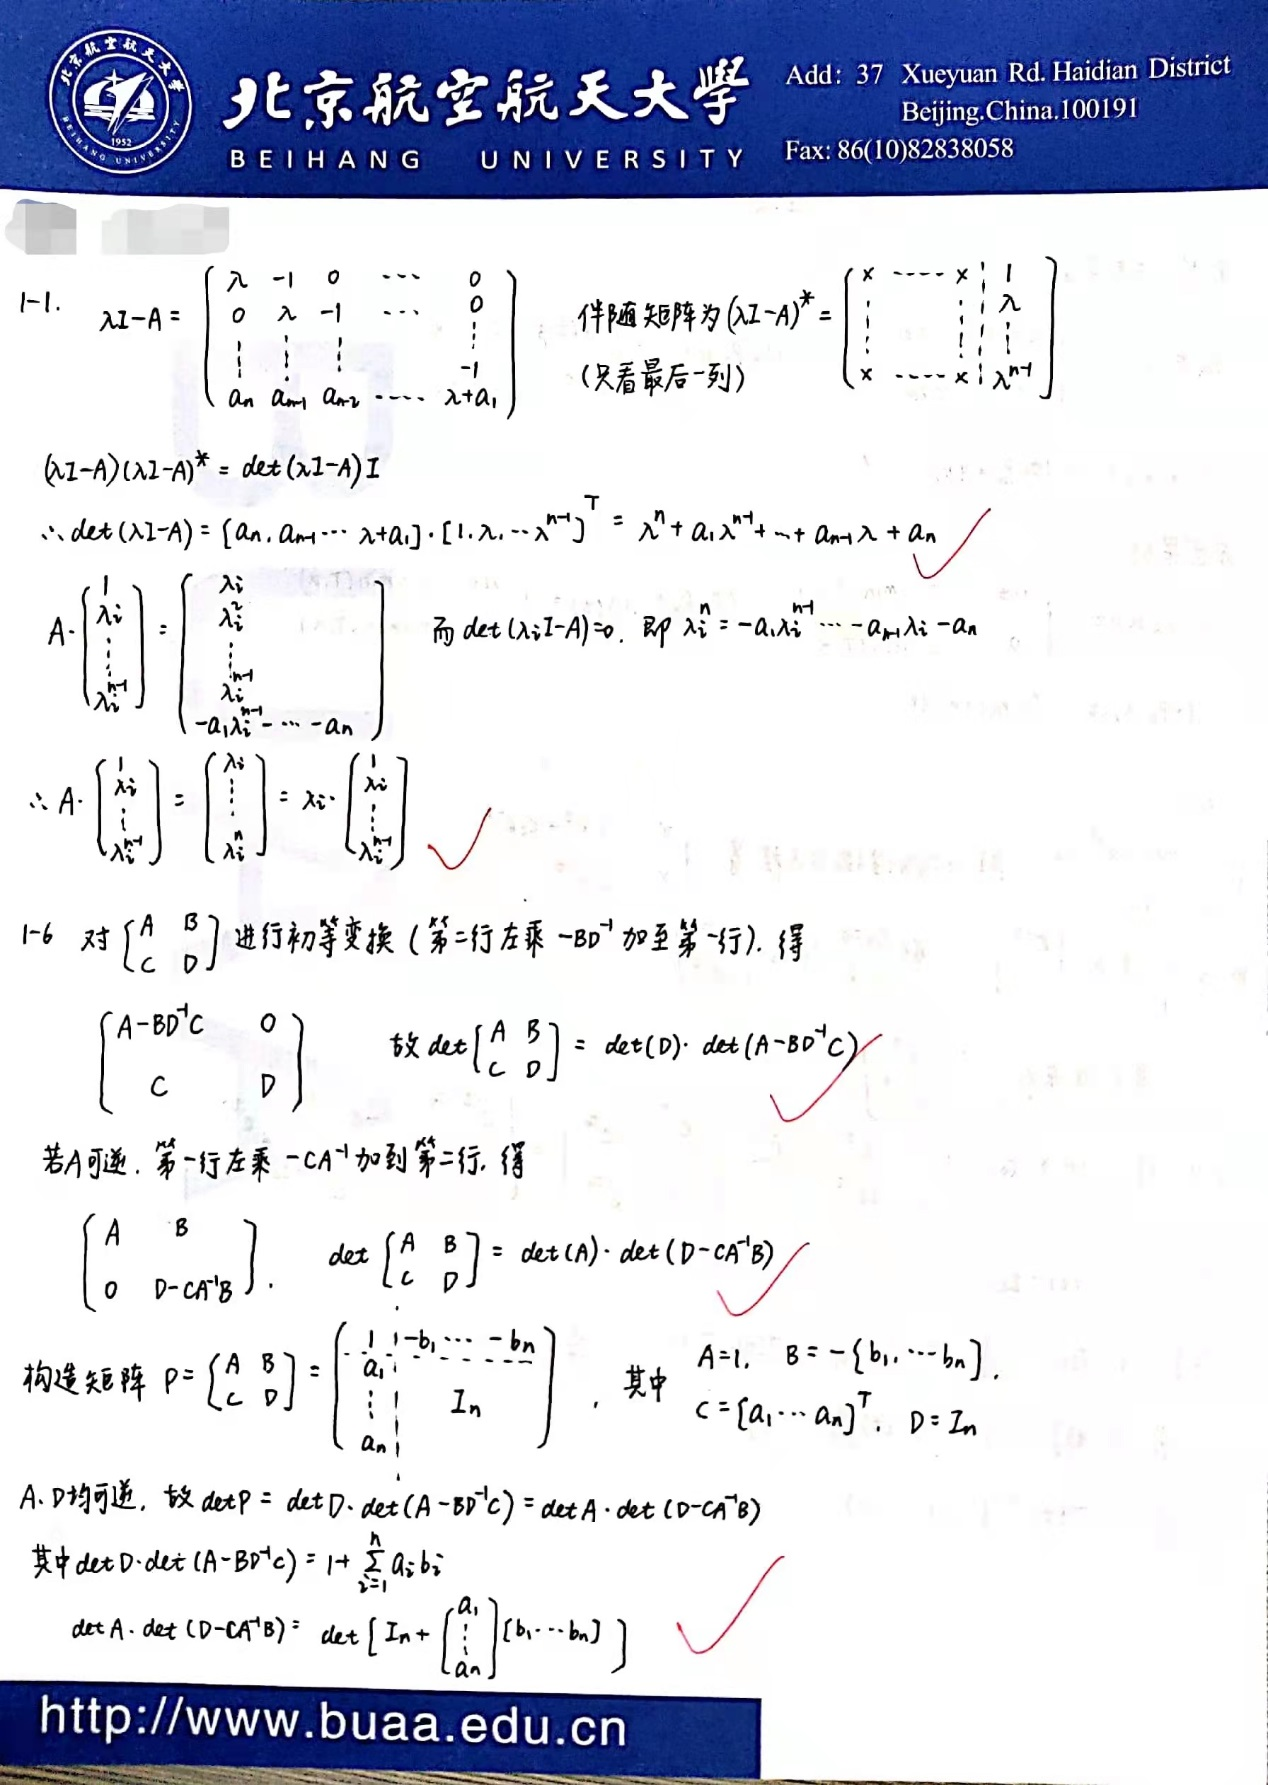 北京航空航天大学
1952
BEIHANG UNIVERSITY
北京航空航天大學
BEIHANG UNIVERSITY
Add: 37 Xueyuan Rd. Haidian District
Beijing.China.100191
Fax: 86(10)82838058
1-1. λI-A = [λ -1 0 ··· 0; 0 λ -1 ··· 0; ⋮ ⋮ ⋮ ⋮ -1; aₙ aₙ₋₁ aₙ₋₂ ····· λ+a₁] 伴随矩阵为(λI-A)* = [× ···· × 1; ⋮ ⋮ λ; ⋮ ⋮ ⋮; × ···· × λⁿ⁻¹]
(只看最后一列)
(λI-A)(λI-A)* = det(λI-A)I
∴ det(λI-A) = [aₙ, aₙ₋₁ ··· λ+a₁]·[1, λ, ··· λⁿ⁻¹]ᵀ = λⁿ + a₁λⁿ⁻¹ + ··· + aₙ₋₁λ + aₙ
A·[1; λᵢ; ⋮; λᵢⁿ⁻¹] = [λᵢ; λᵢ²; ⋮; λᵢⁿ⁻¹; -a₁λᵢⁿ⁻¹ - ··· - aₙ] 而 det(λᵢI-A)=0, 即 λᵢⁿ = -a₁λᵢⁿ⁻¹ ··· - aₙ₋₁λᵢ - aₙ
∴ A·[1; λᵢ; ⋮; λᵢⁿ⁻¹] = [λᵢ; ⋮; λᵢⁿ] = λᵢ·[1; λᵢ; ⋮; λᵢⁿ⁻¹]
1-6 对 [A B; C D] 进行初等变换 (第二行左乘 -BD⁻¹ 加至第一行), 得
[A-BD⁻¹C 0; C D] 故 det[A B; C D] = det(D)·det(A-BD⁻¹C)
若A可逆, 第一行左乘 -CA⁻¹ 加到第二行, 得
[A B; 0 D-CA⁻¹B]. det[A B; C D] = det(A)·det(D-CA⁻¹B)
构造矩阵 P = [A B; C D] = [1 -b₁ ··· -bₙ; a₁; ⋮ Iₙ; aₙ], 其中 A=1, B = -[b₁, ··· bₙ],
C = [a₁ ··· aₙ]ᵀ, D = Iₙ
A、D均可逆, 故 detP = detD·det(A-BD⁻¹C) = detA·det(D-CA⁻¹B)
其中 detD·det(A-BD⁻¹C) = 1+ Σᵢ₌₁ⁿ aᵢbᵢ
detA·det(D-CA⁻¹B) = det[Iₙ + [a₁; ⋮; aₙ][b₁ ··· bₙ]]
http://www.buaa.edu.cn